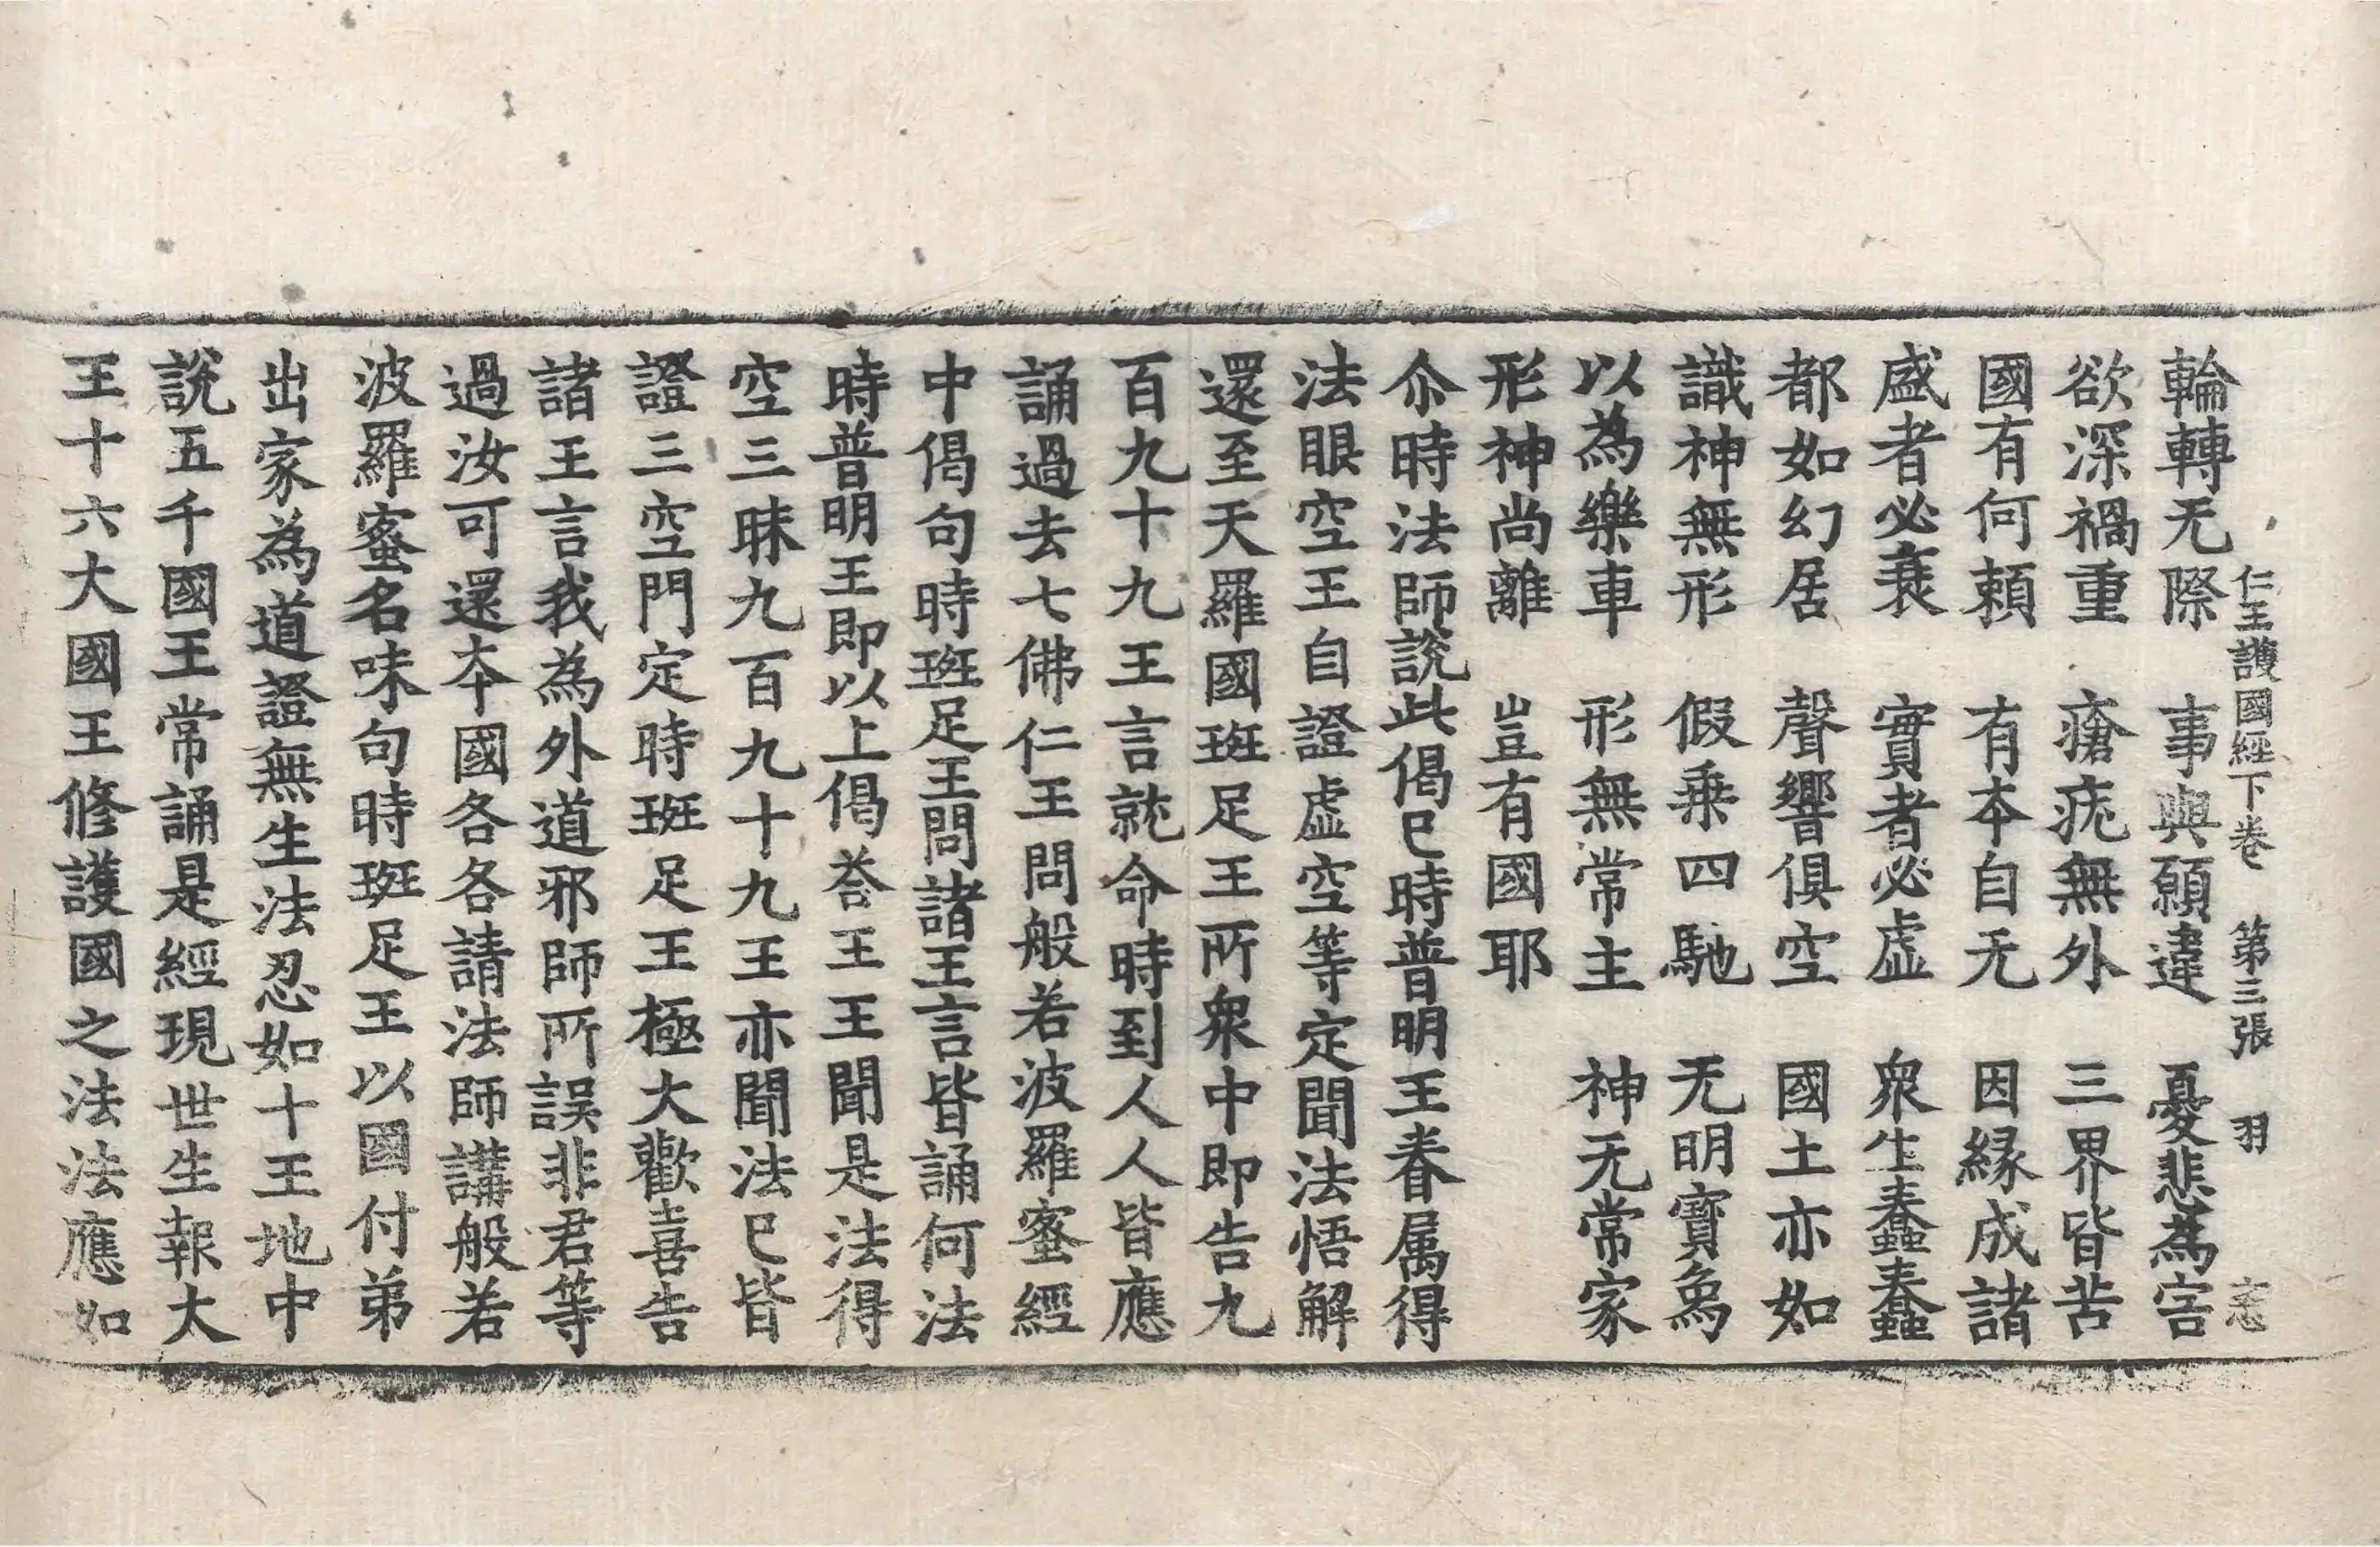 仁王護國經下卷 第三張 羽 忠
輪轉无際 事與願違 憂悲為害
欲深禍重 瘡疣無外 三界皆苦
國有何頼 有夲自无 因緣成諸
盛者必衰 實者必虛 衆生蠢蠢
都如幻居 聲響俱空 國土亦如
識神無形 假乗四馳 无明寶象
以為樂車 形無常主 神无常家
形神尚離 豈有國耶
尒時法師說此偈已時普明王眷属得
法眼空王自證虛空等定聞法悟解
還至天羅國班足王所衆中即告九
百九十九王言就命時到人人皆應
誦過去七佛仁王問般若波羅蜜經
中偈句時班足王問諸王言皆誦何法
時普明王即以上偈荅王王聞是法得
空三昧九百九十九王亦聞法已皆
證三空門定時班足王極大歡喜告
諸王言我為外道邪師所誤非君等
過汝可還夲國各各請法師講般若
波羅蜜名味句時班足王以國付弟
出家為道證無生法忍如十王地中
說五千國王常誦是經現世生報大
王十六大國王修護國之法法應如